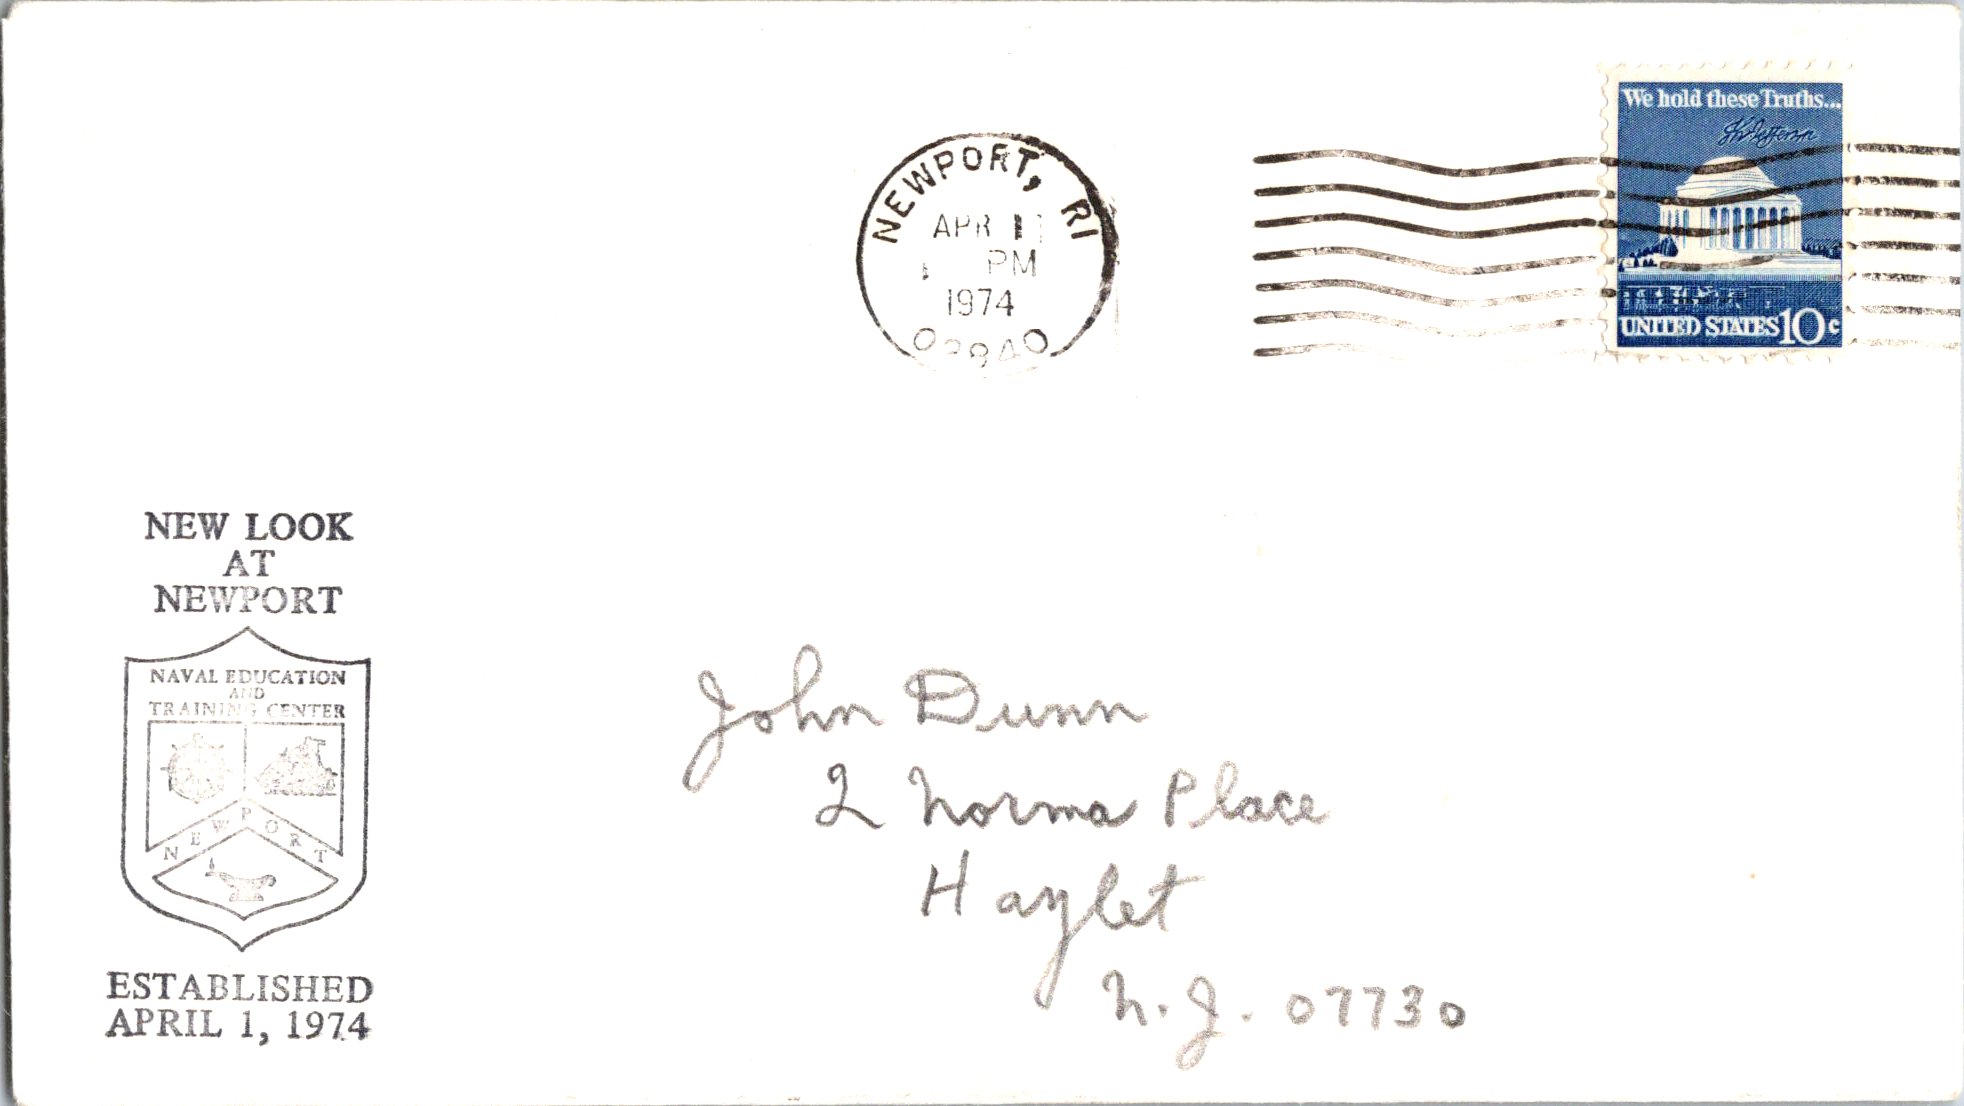 We hold these Truths...
Th Jefferson
UNITED STATES 10c
NEWPORT, RI
APR 1
PM
1974
02840
NEW LOOK
AT
NEWPORT
NAVAL EDUCATION
AND
TRAINING CENTER
NEWPORT
ESTABLISHED
APRIL 1, 1974
John Dunn
2 Norma Place
Hazlet
N.J. 07730